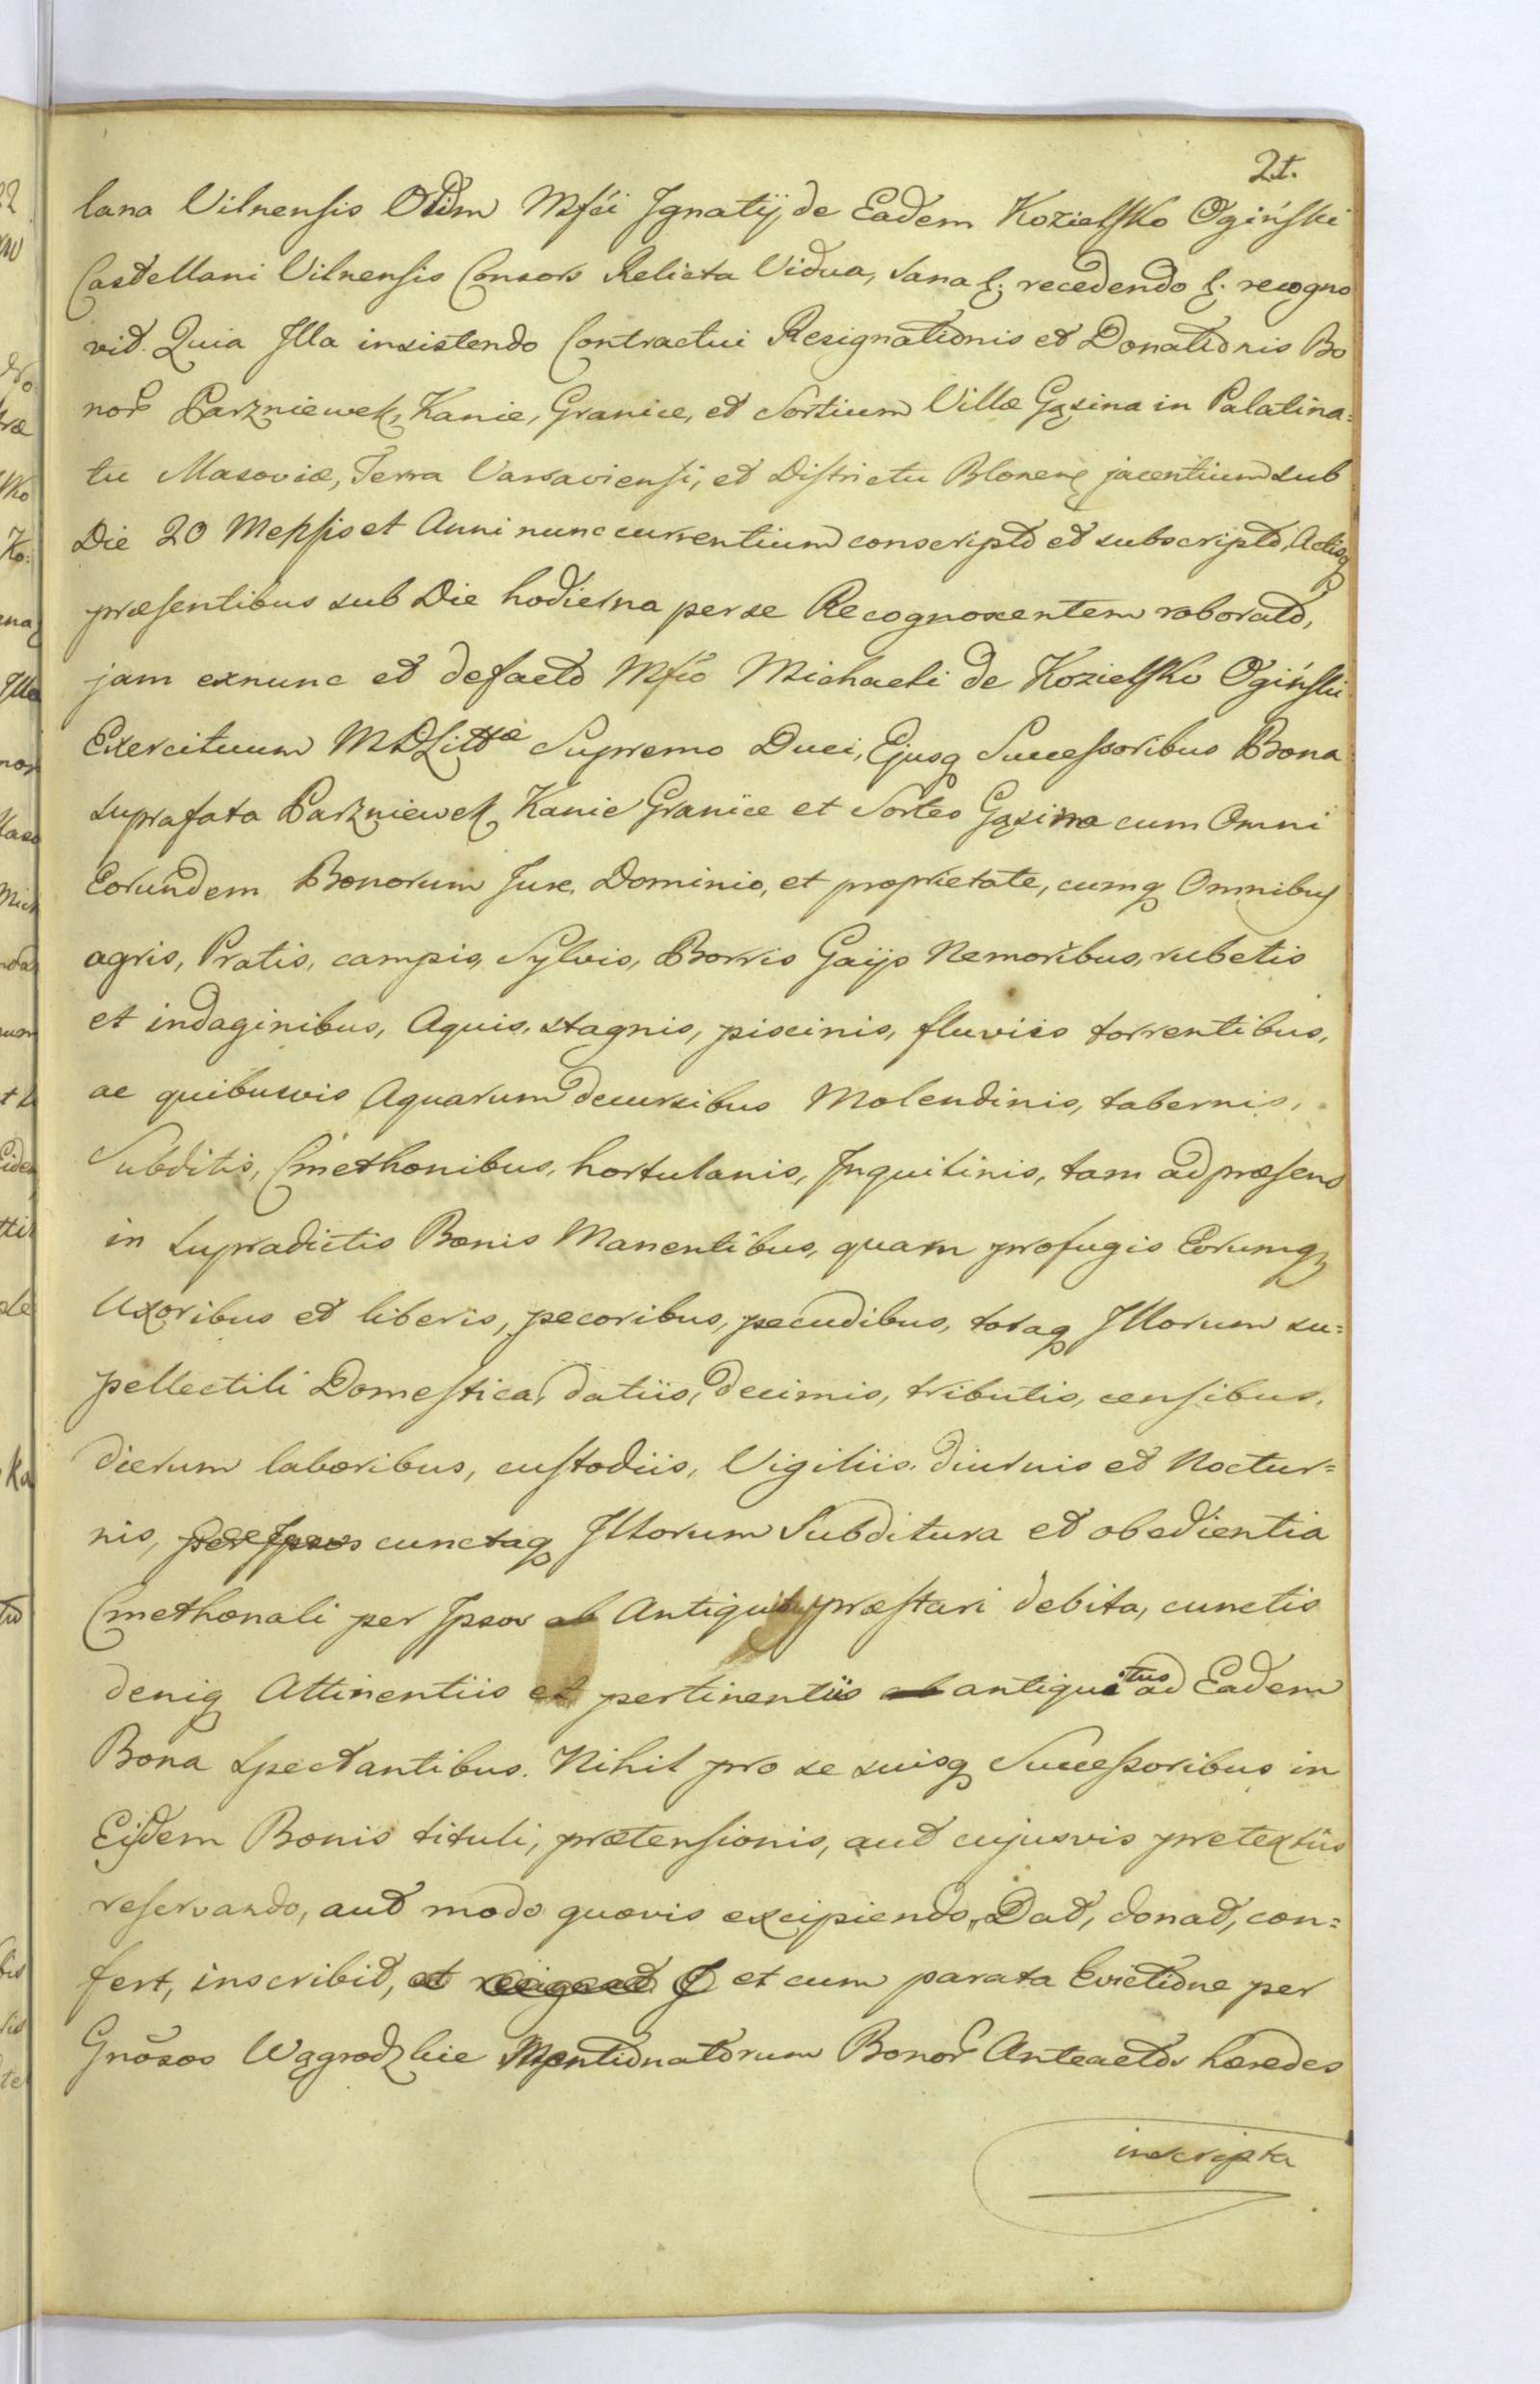 2t.
lana Vilnensis Olim Mfci Ignatij de Eadem Kozielsko Ogiński
Castellani Vilnensis Consors Relicta Vidua, sana &; recedendo &; recogno
vit. Quia Illa insistendo Contractui Resignationis et Donationis Bo
nor Parzniewek, Kanie, Granice, et Sortium Villæ Gąsina in Palatina=
tu Masoviæ, Terra Varsaviensi, et Districtu Blonen jacentium sub
Die 20 Mensis et Anni nunc currentium conscripto et subscripto, Actisq
præsentibus sub Die hodierna per se Recognoscentem roborato,
jam exnunc et defacto Mfco Michaeli de Kozielsko Ogiński
Exercituum MDLittæ Supremo Duci, Ejusq Successoribus Bona
suprafata Parzniewek, Kanie Granice et Sortes Gąsina cum Omni
Eorundem Bonorum Jure, Dominio, et proprietate, cumq Omnibus
agris, Pratis, campis, Sylvis, Borris Gaijs Nemoribus, rubetis
et indaginibus, Aquis, stagnis, piscinis, fluviis torrentibus,
ac quibusvis Aquarum decursibus Molendinis, tabernis,
Subditis, Cmethonibus, hortulanis, Inquilinis, tam ad præsens
in supradictis Bonis Manentibus, quam profugis Eorumq
Uxoribus et liberis, pecoribus, pecudibus, totaq Illorum su=
pellectili Domestica, datiis, decimis, tributis, censibus,
dierum laboribus, custodiis, Vigiliis, diurnis et Noctur=
nis, per Ipsos cunctaq Illorum Subditura et obedientia
Cmethonali per Ipsos ab Antiquitus præstari debita, cunctis
deniq Attinentiis et pertinentiis ab antiquitus ad Eadem
Bona spectantibus. Nihil pro se suisq Successoribus in
Eisdem Bonis tituli, prætensionis, aut cujusvis pretextus
reservando, aut modo quovis excipiendo, Dat, donat, con=
fert, inscribit, et resignat & et cum parata Evictione per
Gnosos Wągrodzkie Mentionatorum Bonor Anteactos hæredes
inscripta